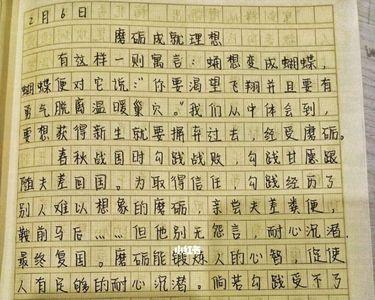 2月6日
磨砺成就理想
有这样一则寓言：蛹想变成蝴蝶，
蝴蝶便对它说：“你要渴望飞翔并且要有
勇气脱离温暖巢穴。”我们从中体会到，
要想获得新生就要摒弃过去，经受磨砺。
春秋战国时勾践战败，勾践甘愿跟
随夫差回国。为取得信任，勾践经历了
别人难以想象的磨砺，亲尝夫差粪便，
鞍前马后……但他别无怨言，耐心沉潜，
最终复国。磨砺能锻炼人的心智，促使
人有足够的耐心沉潜。倘若勾践受不了
小红书